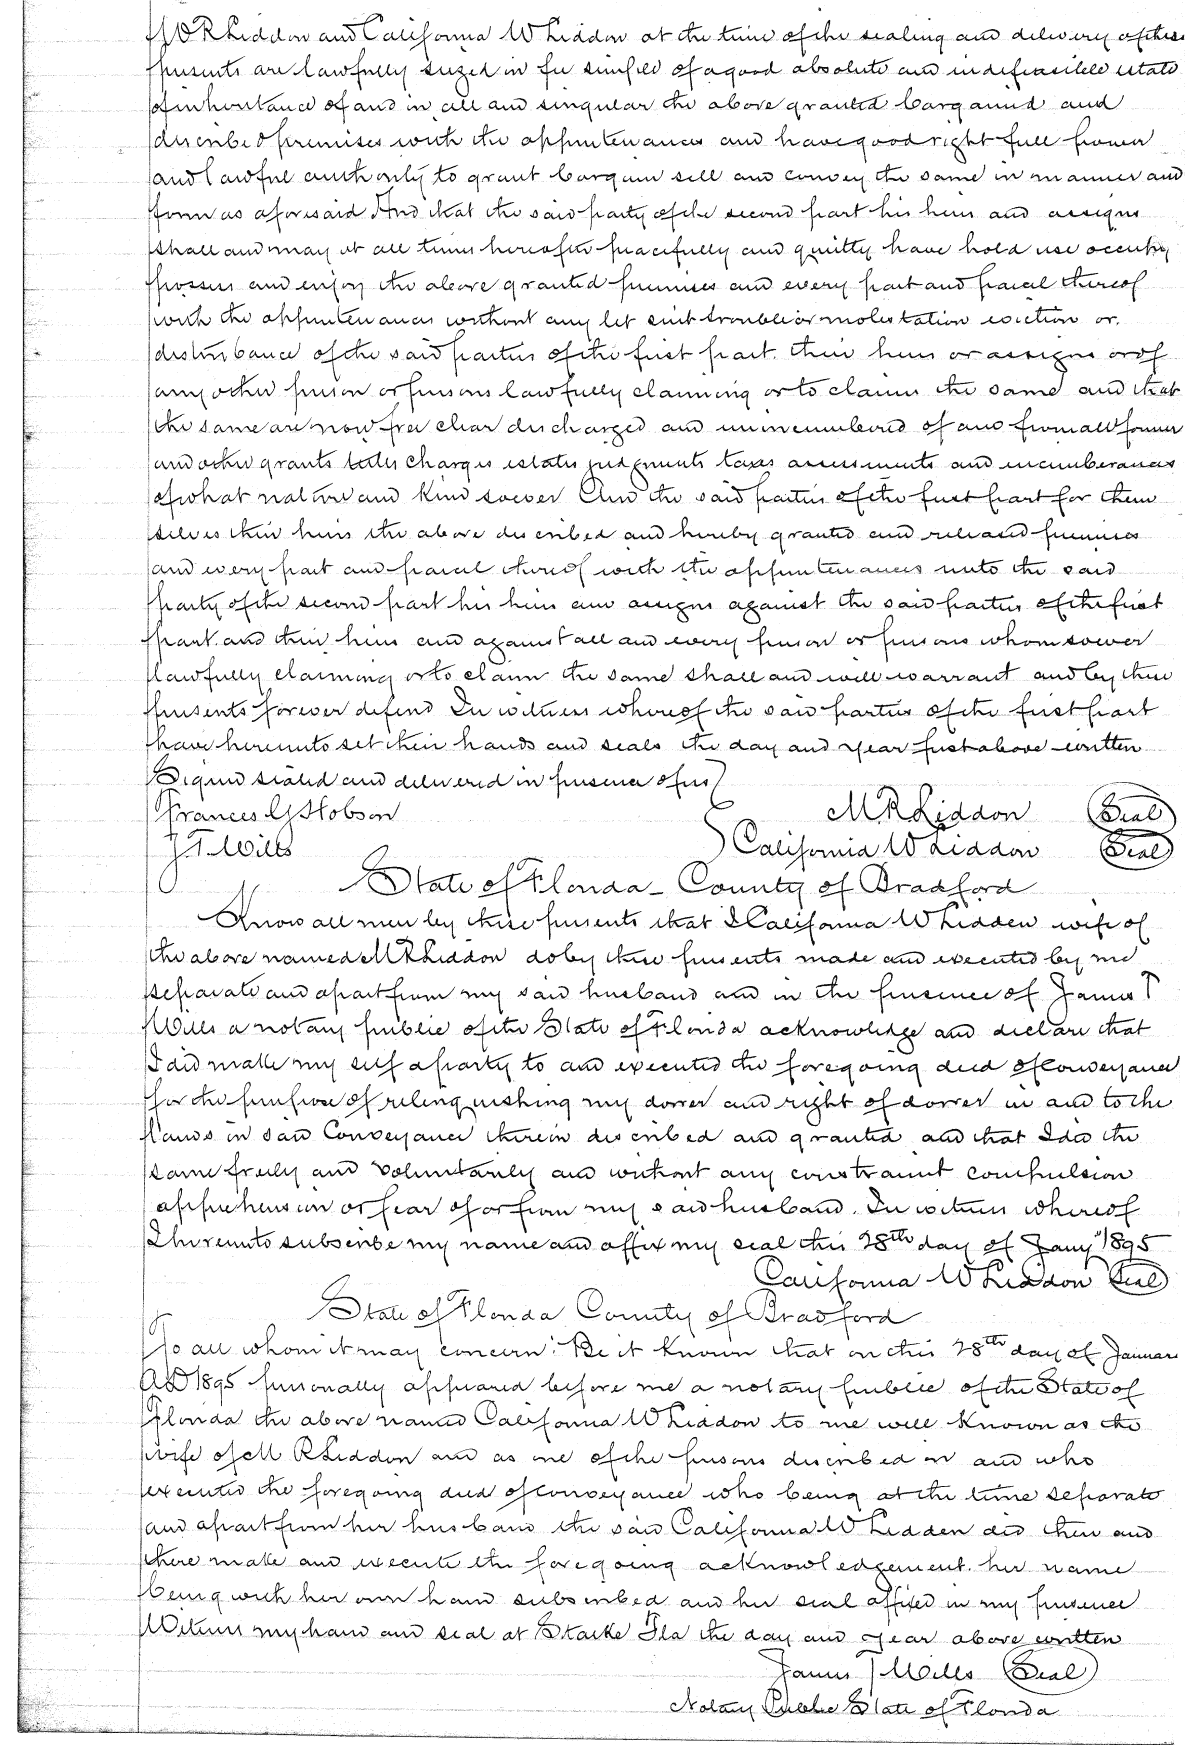 M R Liddon and California W Liddon at the time of the sealing and delivery of these
presents are lawfully seized in fee simple of a good absolute and indefeasible estate
of inheritance of and in all and singular the above granted bargained and
described premises with the appurtenances and have good right full power
and lawful authority to grant bargain sell and convey the same in manner and
form as aforesaid And that the said party of the second part his heirs and assigns
shall and may at all times hereafter peacefully and quietly have hold use occupy
possess and enjoy the above granted premises and every part and parcel thereof
with the appurtenances without any let suit trouble or molestation eviction or
disturbance of the said parties of the first part their heirs or assigns or of
any other person or persons lawfully claiming or to claim the same and that
the same are now free clear discharged and unincumbered of and from all former
and other grants titles charges estates judgments taxes assessments and incumberances
of what nature and kind soever And the said parties of the first part for them
selves their heirs the above described and hereby granted and released premises
and every part and parcel thereof with the appurtenances unto the said
party of the second part his heirs and assigns against the said parties of the first
part and their heirs and against all and every person or persons whomsoever
lawfully claiming or to claim the same shall and will warrant and by these
presents forever defend In witness whereof the said parties of the first part
have hereunto set their hands and seals the day and year first above written
Signed sealed and delivered in presence of us
Frances G Hobson M R Liddon Seal
J. T. Wills California W Liddon Seal
State of Florida - County of Bradford
Know all men by these presents that I California W Lidden wife of
the above named M R Liddon do by these presents made and executed by me
separate and apart from my said husband and in the presence of James T
Wills a notary public of the State of Florida acknowledge and declare that
I did make my self a party to and executed the foregoing deed of conveyance
for the purpose of relinquishing my dower and right of dower in and to the
lands in said Conveyance therein described and granted and that I did the
same freely and voluntarily and without any constraint compulsion
apprehension or fear of or from my said husband. In witness whereof
I hereunto subscribe my name and affix my seal this 28th day of Jany 1895
California W Liddon Seal
State of Florida County of Bradford
To all whom it may concern: Be it known that on this 28th day of January
AD 1895 personally appeared before me a notary public of the State of
Florida the above named California W Liddon to me well known as the
wife of M R Liddon and as one of the persons described in and who
executed the foregoing deed of conveyance who being at the time separate
and apart from her husband the said California W Lidden did then and
there make and execute the foregoing acknowledgement. her name
being with her own hand subscribed and her seal affixed in my presence
Witness my hand and seal at Starke Fla the day and year above written
James T Wills Seal
Notary Public State of Florida